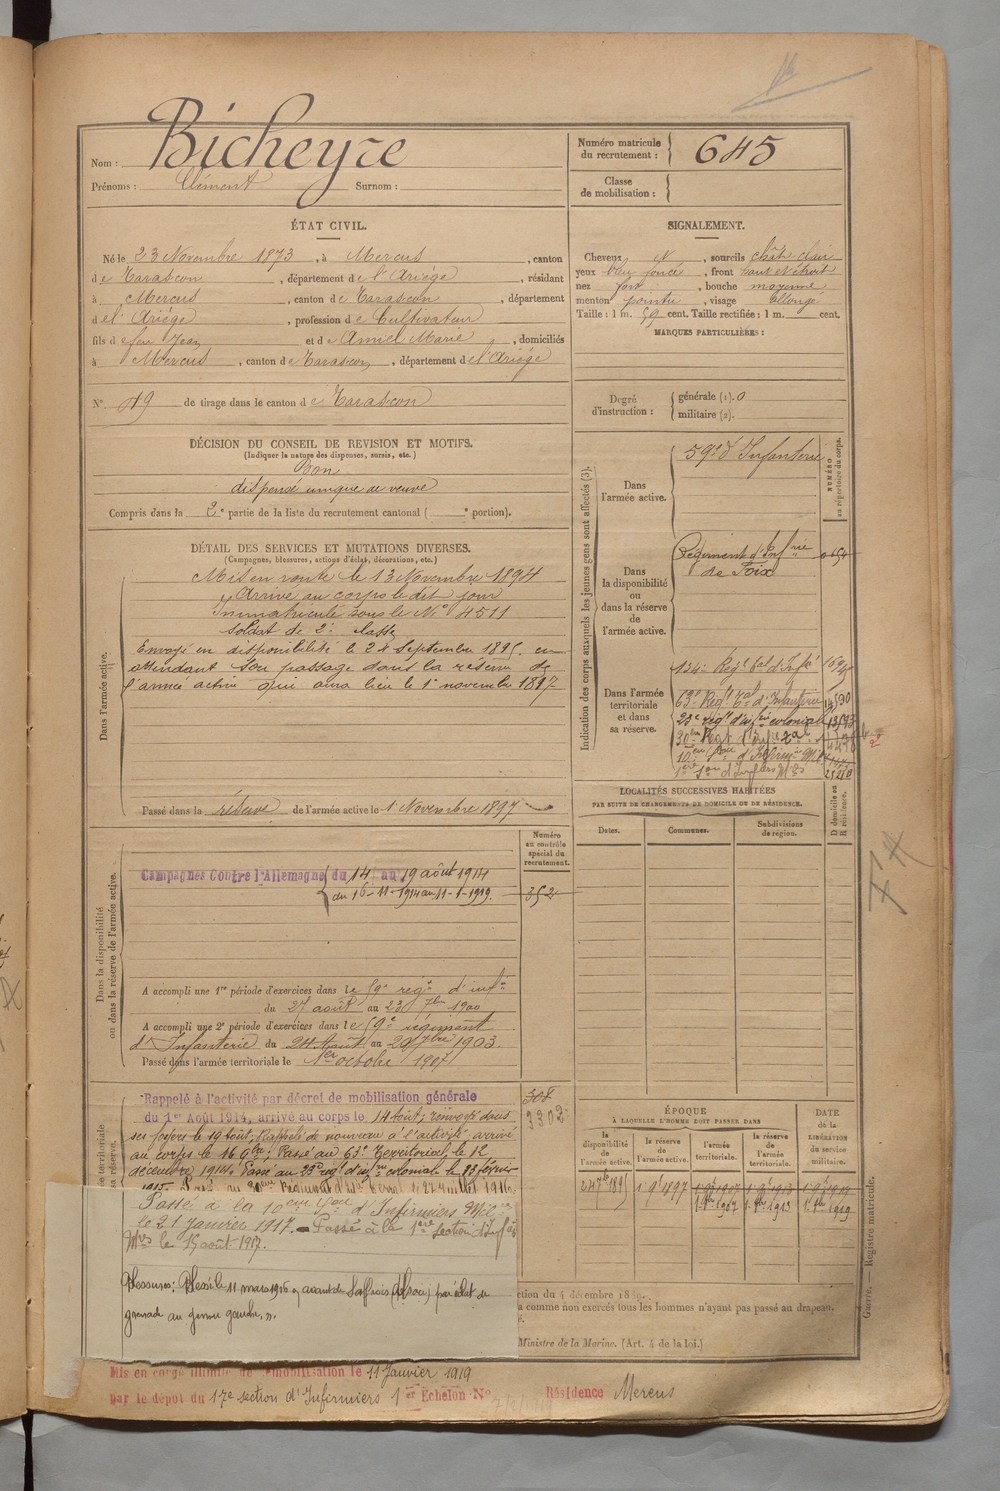 Nom : Bicheyre
Prénoms : Clément Surnom :
Numéro matricule du recrutement : 645
Classe de mobilisation :
ÉTAT CIVIL.
Né le 23 Novembre 1873, à Mercus, canton
de Tarascon, département de l'Ariège, résidant
à Mercus, canton de Tarascon, département
de l'Ariège, profession de Cultivateur
fils de feu Jean et de Amiel Marie, domiciliés
à Mercus, canton de Tarascon, département de l'Ariège
N° 49 de tirage dans le canton de Tarascon
SIGNALEMENT.
Cheveux N, sourcils chât. clair
yeux bleu foncé, front haut et étroit
nez fort, bouche moyenne
menton pointu, visage allongé
Taille : 1 m. 59 cent. Taille rectifiée : 1 m. cent.
MARQUES PARTICULIÈRES :
Degré d'instruction : générale (1). 0
militaire (2).
DÉCISION DU CONSEIL DE REVISION ET MOTIFS.
(Indiquer la nature des dispenses, sursis, etc.)
Bon
dispensé unique de veuve
Compris dans la 2e partie de la liste du recrutement cantonal ( e portion).
DÉTAIL DES SERVICES ET MUTATIONS DIVERSES.
(Campagnes, blessures, actions d'éclat, décorations, etc.)
Dans l'armée active.
Mis en route le 13 Novembre 1894
Arrivé au corps le dit jour
Immatriculé sous le N° 4511
soldat de 2e classe
Envoyé en disponibilité le 24 Septembre 1895 en
attendant son passage dans la réserve de
l'armée active qui aura lieu le 1er novembre 1897
Passé dans la réserve de l'armée active le 1 Novembre 1897
Indication des corps auxquels les jeunes gens sont affectés (3).
NUMÉRO au répertoire du corps.
Dans l'armée active.
59e d'Infanterie
Dans la disponibilité ou dans la réserve de l'armée active.
Régiment d'Inf rie
de Foix
Dans l'armée territoriale et dans sa réserve.
134e Regt tal d'Infie
63e Regt Tal d'Infanterie
23e régt d'infrie coloniale
21210
LOCALITÉS SUCCESSIVES HABITÉES
PAR SUITE DE CHANGEMENTS DE DOMICILE OU DE RÉSIDENCE.
Dates. Communes. Subdivisions de région. D domicile ou R résidence.
Dans la disponibilité ou dans la réserve de l'armée active.
Numéro au contrôle spécial du recrutement.
Campagnes Contre l'Allemagne du 14 au 19 août 1914
du 16-11-1914 au 11-1-1919.
352
A accompli une 1re période d'exercices dans le 59e régt d'infie
du 27 août au 23 7bre 1900
A accompli une 2e période d'exercices dans le 59e régiment
d'Infanterie du 24 Août au 20 7bre 1903
Passé dans l'armée territoriale le 1er octobre 1907
Rappelé à l'activité par décret de mobilisation générale
du 1er Août 1914, arrivé au corps le 14 août, renvoyé dans
ses foyers le 19 août; Rappelé de nouveau à l'activité, arrivé
au corps le 16 9bre; Passé au 63e Territorial, le 12
décembre 1914. Passé au 23e régt d'infie coloniale le 23 février
308
3302
Passé à la 10eme Son d'Infirmiers Mil res
le 21 janvier 1917. Passé à la 1ere Section d'Infirs
Mres le 15 août 1917.
Blessures : Blessé le 11 mars 1916 par éclat de
grenade au genou gauche.
ÉPOQUE
À LAQUELLE L'HOMME DOIT PASSER DANS
la disponibilité de l'armée active. la réserve de l'armée active. l'armée territoriale. la réserve de l'armée territoriale.
DATE de la LIBÉRATION du service militaire.
24 7bre 1895 1 9bre 1897 1 9bre 1907 1 9bre 1913 1 9bre 1919
1 8bre 1907 1 8bre 1913 1 8bre 1919
a comme non exercés tous les hommes n'ayant pas passé au drapeau.
Ministre de la Marine. (Art. 4 de la loi.)
Guerre. — Registre matricule.
Mis en congé illimité de démobilisation le 11 Janvier 1919
par le dépot du 17e section d'Infirmiers 1er Échelon No Résidence Mercus